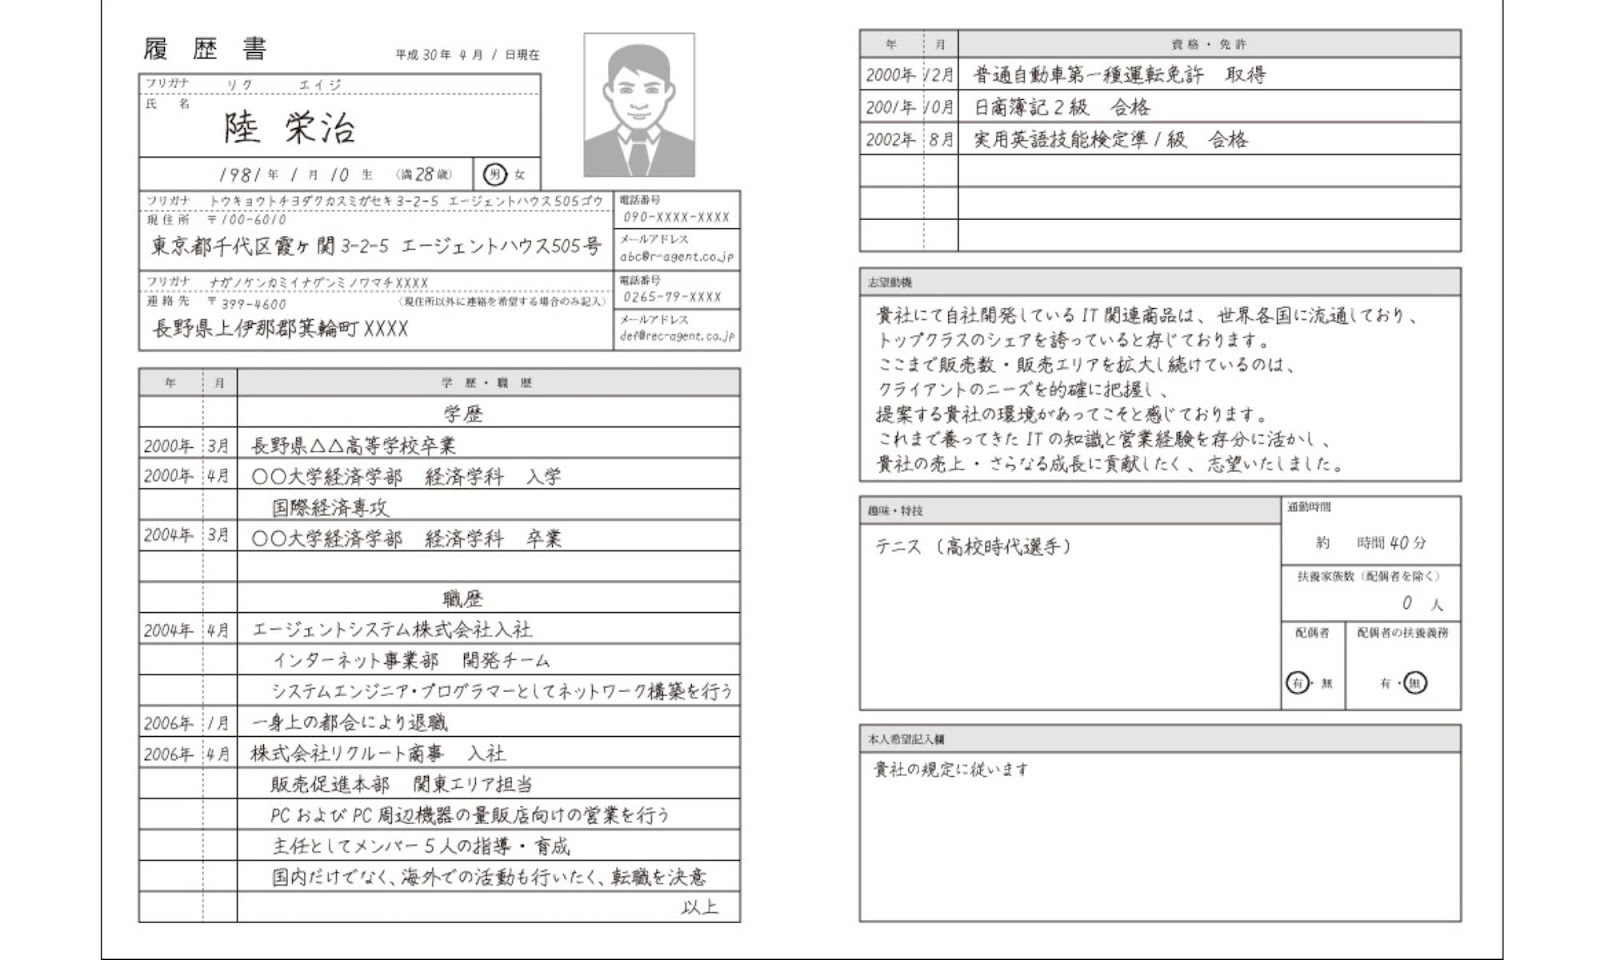 履歴書
平成30年 4月 1日現在
フリガナ リク エイジ
氏 名
陸 栄治
1981年 1月 10 生 (満28歳)
男 女
フリガナ トウキョウトチヨダクカスミガセキ3-2-5 エージェントハウス505ゴウ
現住所 〒100-6010
東京都千代区霞ヶ関3-2-5 エージェントハウス505号
電話番号
090-XXXX-XXXX
メールアドレス
abc@r-agent.co.jp
フリガナ ナガノケンカミイナグンミノワマチXXXX
連絡先 〒399-4600 (現住所以外に連絡を希望する場合のみ記入)
長野県上伊那郡箕輪町XXXX
電話番号
0265-79-XXXX
メールアドレス
def@rec-agent.co.jp
年 月 学歴・職歴
学歴
2000年 3月 長野県△△高等学校卒業
2000年 4月 〇〇大学経済学部 経済学科 入学
国際経済専攻
2004年 3月 〇〇大学経済学部 経済学科 卒業
職歴
2004年 4月 エージェントシステム株式会社入社
インターネット事業部 開発チーム
システムエンジニア・プログラマーとしてネットワーク構築を行う
2006年 1月 一身上の都合により退職
2006年 4月 株式会社リクルート商事 入社
販売促進本部 関東エリア担当
PCおよびPC周辺機器の量販店向けの営業を行う
主任としてメンバー5人の指導・育成
国内だけでなく、海外での活動も行いたく、転職を決意
以上
年 月 資格・免許
2000年 12月 普通自動車第一種運転免許 取得
2001年 10月 日商簿記2級 合格
2002年 8月 実用英語技能検定準1級 合格
志望動機
貴社にて自社開発しているIT関連商品は、世界各国に流通しており、
トップクラスのシェアを誇っていると存じております。
ここまで販売数・販売エリアを拡大し続けているのは、
クライアントのニーズを的確に把握し、
提案する貴社の環境があってこそと感じております。
これまで養ってきたITの知識と営業経験を存分に活かし、
貴社の売上・さらなる成長に貢献したく、志望いたしました。
趣味・特技
テニス (高校時代選手)
通勤時間
約 時間40分
扶養家族数(配偶者を除く)
0 人
配偶者
有・無
配偶者の扶養義務
有・無
本人希望記入欄
貴社の規定に従います